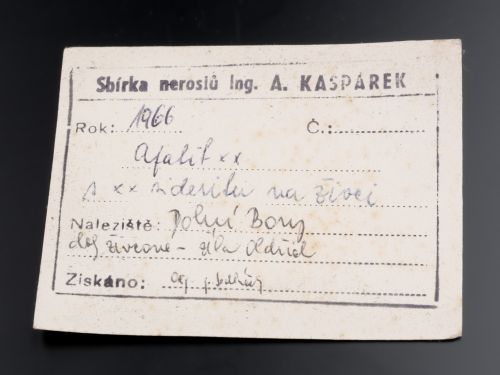 Sbírka nerostů Ing. A. KASPÁREK
Rok: 1966 Č.:
Apatit xx
s xx sideritu na živci
Naleziště: Dolní Bory
doly živcové - žíla Oldřich
Získáno: